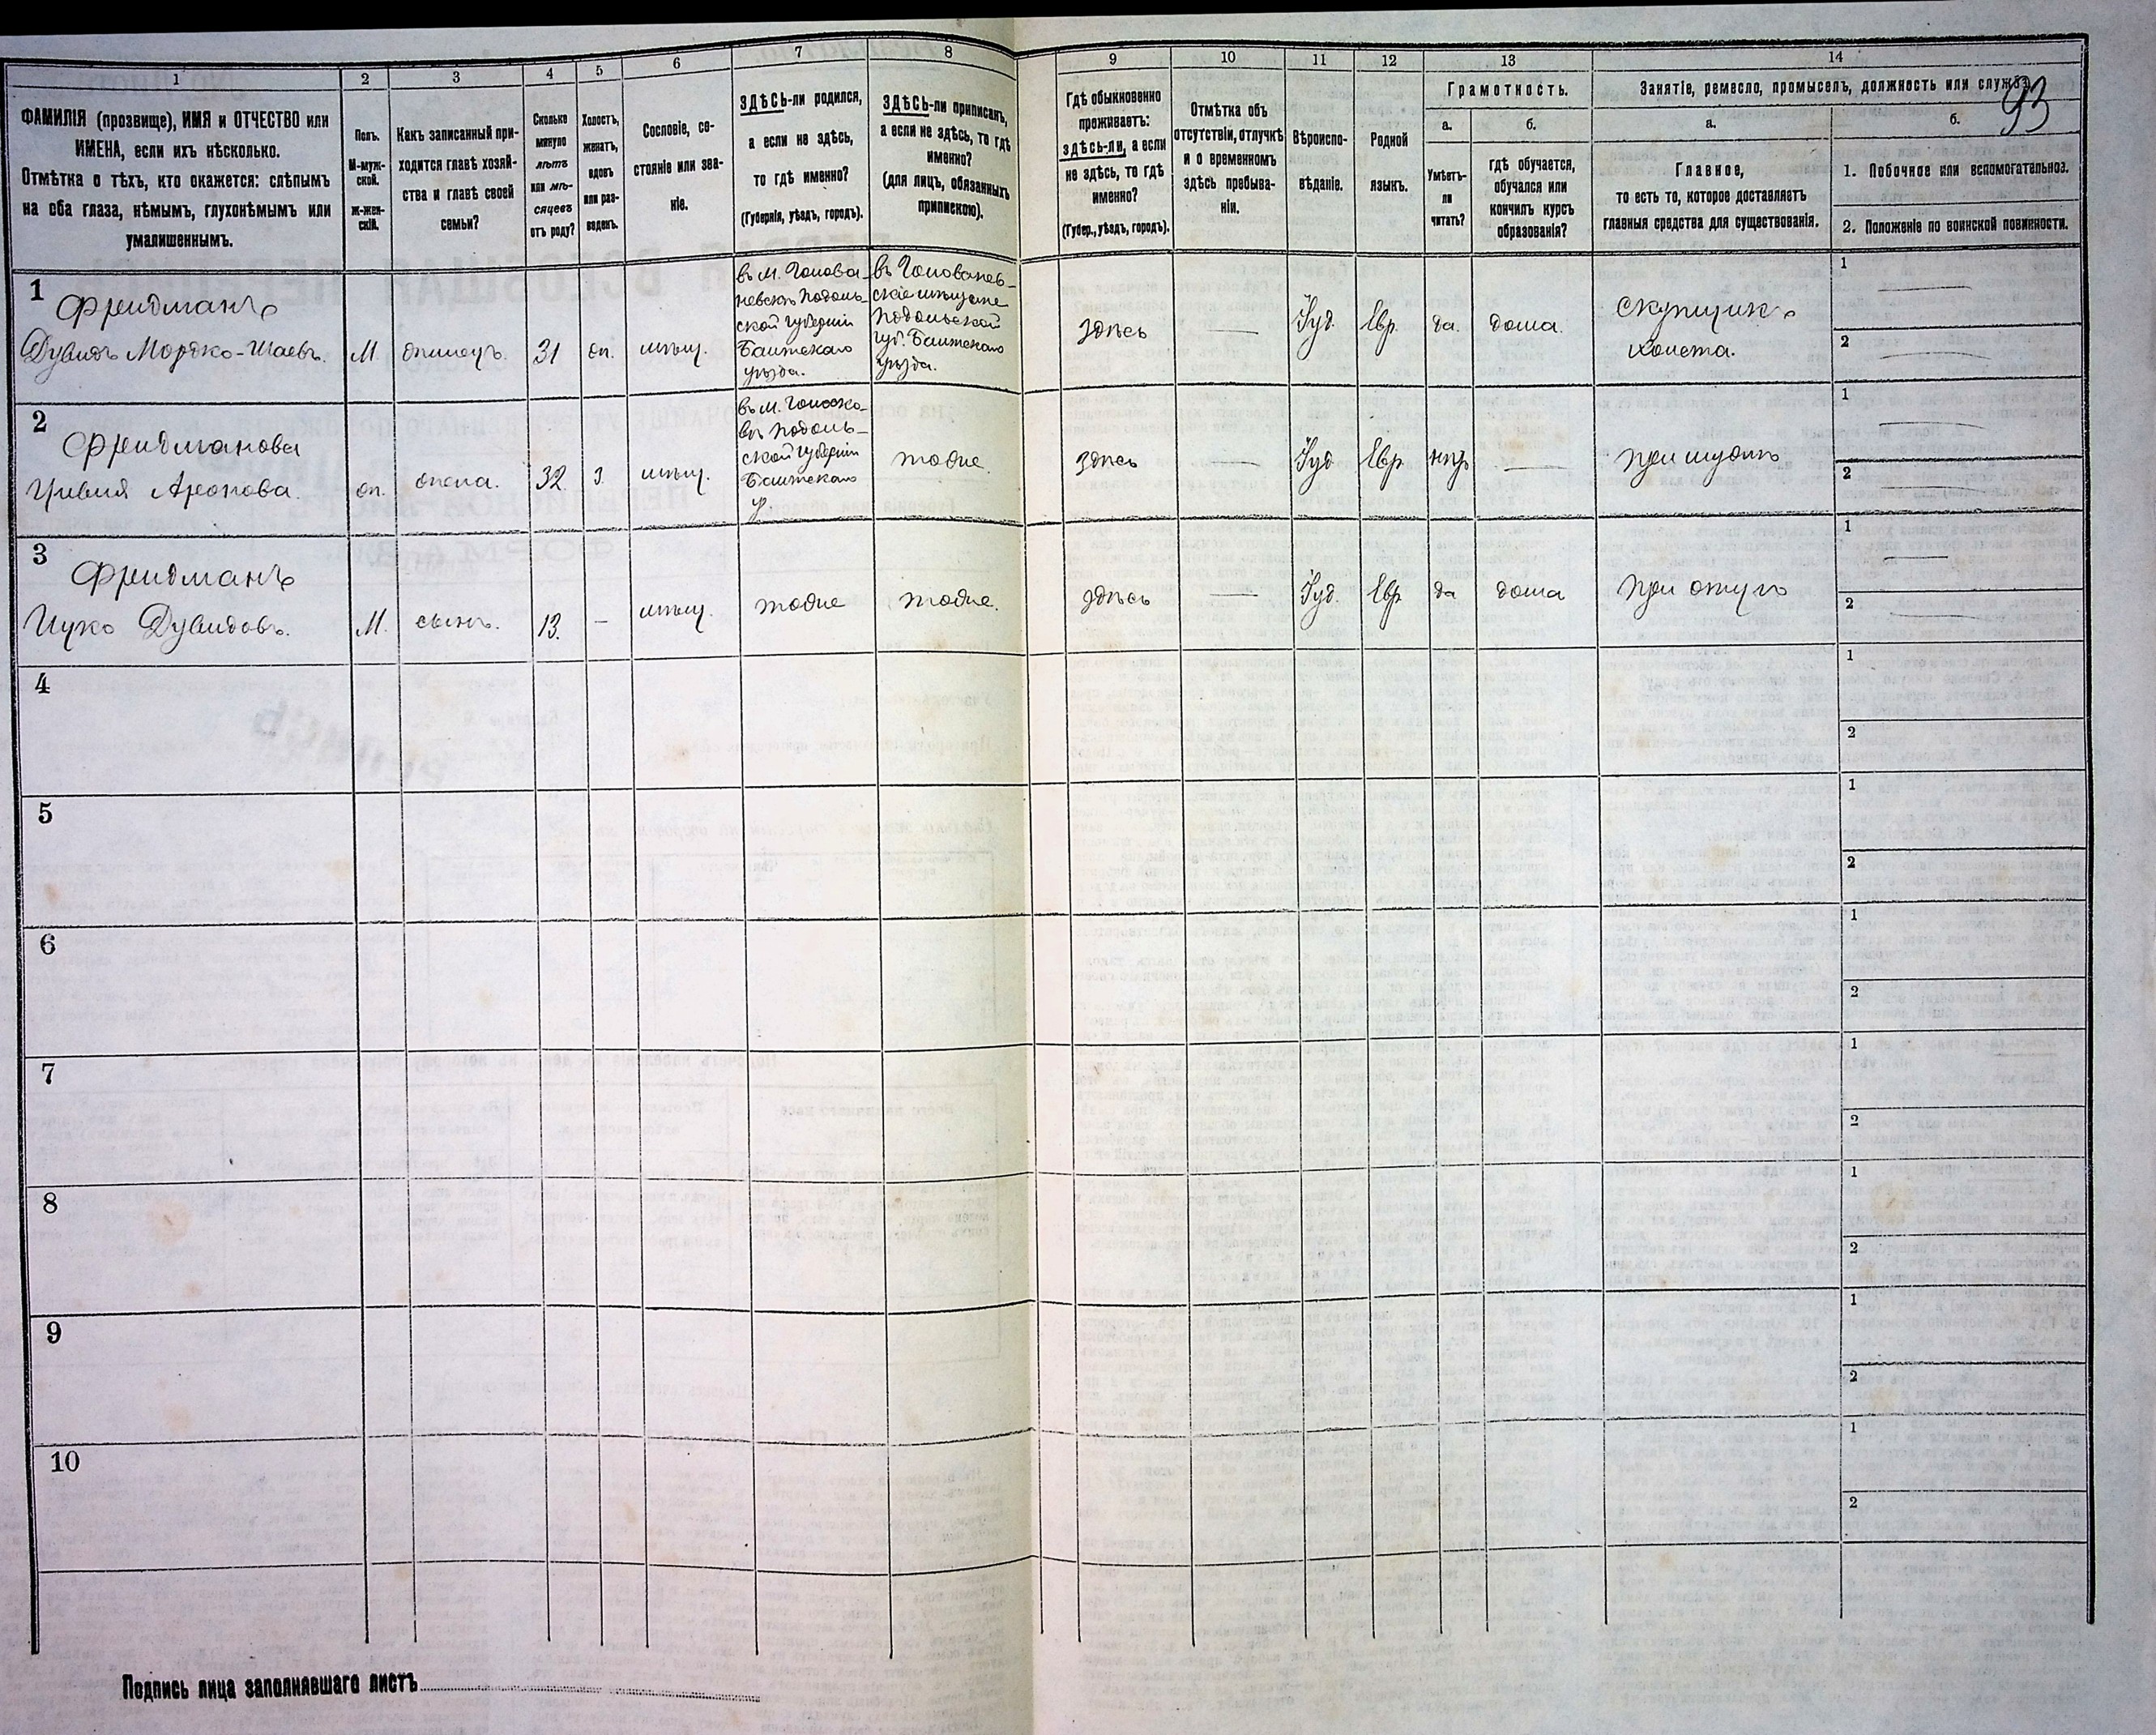 93
1
2
3
4
5
6
7
8
9
10
11
12
13
14
ФАМИЛІЯ (прозвище), ИМЯ и ОТЧЕСТВО или
ИМЕНА, если ихъ нѣсколько.
Отмѣтка о тѣхъ, кто окажется: слѣпымъ
на оба глаза, нѣмымъ, глухонѣмымъ или
умалишеннымъ.
Полъ.
М-муж-
ской.
Ж-жен-
скій.
Какъ записанный при-
ходится главѣ хозяй-
ства и главѣ своей
семьи?
Сколько
минуло
лѣтъ
или мѣ-
сяцевъ
отъ роду?
Холостъ,
женатъ,
вдовъ
или раз-
веденъ.
Сословіе, со-
стояніе или зва-
ніе.
ЗДѢСЬ-ли родился,
а если не здѣсь,
то гдѣ именно?
(Губернія, уѣздъ, городъ).
ЗДѢСЬ-ли приписанъ,
а если не здѣсь, то гдѣ
именно?
(для лицъ, обязанныхъ
припискою).
Гдѣ обыкновенно
проживаетъ:
здѣсь-ли, а если
не здѣсь, то гдѣ
именно?
(Губер., уѣздъ, городъ).
Отмѣтка объ
отсутствіи, отлучкѣ
и о временномъ
здѣсь пребыва-
ніи.
Вѣроиспо-
вѣданіе.
Родной
языкъ.
Грамотность.
а.
Умѣетъ-
ли
читать?
б.
гдѣ обучается,
обучался или
кончилъ курсъ
образованія?
Занятіе, ремесло, промыселъ, должность или служба.
а.
Главное,
то есть то, которое доставляетъ
главныя средства для существованія.
б.
1. Побочное или вспомогательное.
2. Положеніе по воинской повинности.
1
Фридманъ
Дувидъ Мордко-Шаевъ.
М.
31
мѣщ.
въ М. Голова-
невскъ Подоль-
ской губерніи
Балтскаго
уѣзда.
въ Голованев-
скіе мѣщане
Подольской
губ. Балтскаго
уѣзда.
здѣсь
Іуд.
Евр.
да.
дома.
скупщикъ
холста.
1
2
2
Фридманова
Цивья Аронова.
жена.
32
з.
мѣщ.
въ М.
Подоль-
ской губерніи
Балтскаго
у.
тоже.
здѣсь
Іуд.
Евр.
нѣтъ
при мужѣ
1
2
3
Фридманъ
Ицко Дувидовъ.
М.
сынъ.
13.
–
мѣщ.
тоже
тоже.
здѣсь
Іуд.
Евр.
да
дома
при отцѣ
1
2
4
1
2
5
1
2
6
1
2
7
1
2
8
1
2
9
1
2
10
1
2
Подпись лица заполнявшаго листъ